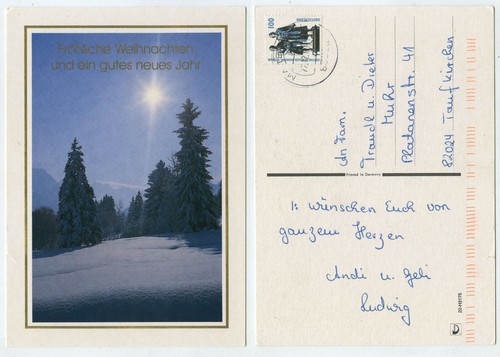 Fröhliche Weihnachten
und ein gutes neues Jahr
100
An Fam.
Traudl u. Dieter
Muhr
Platanenstr. 41
82024 Taufkirchen
Printed in Germany
wünschen Euch von
ganzem Herzen
Andi u. Geli
Ludwig